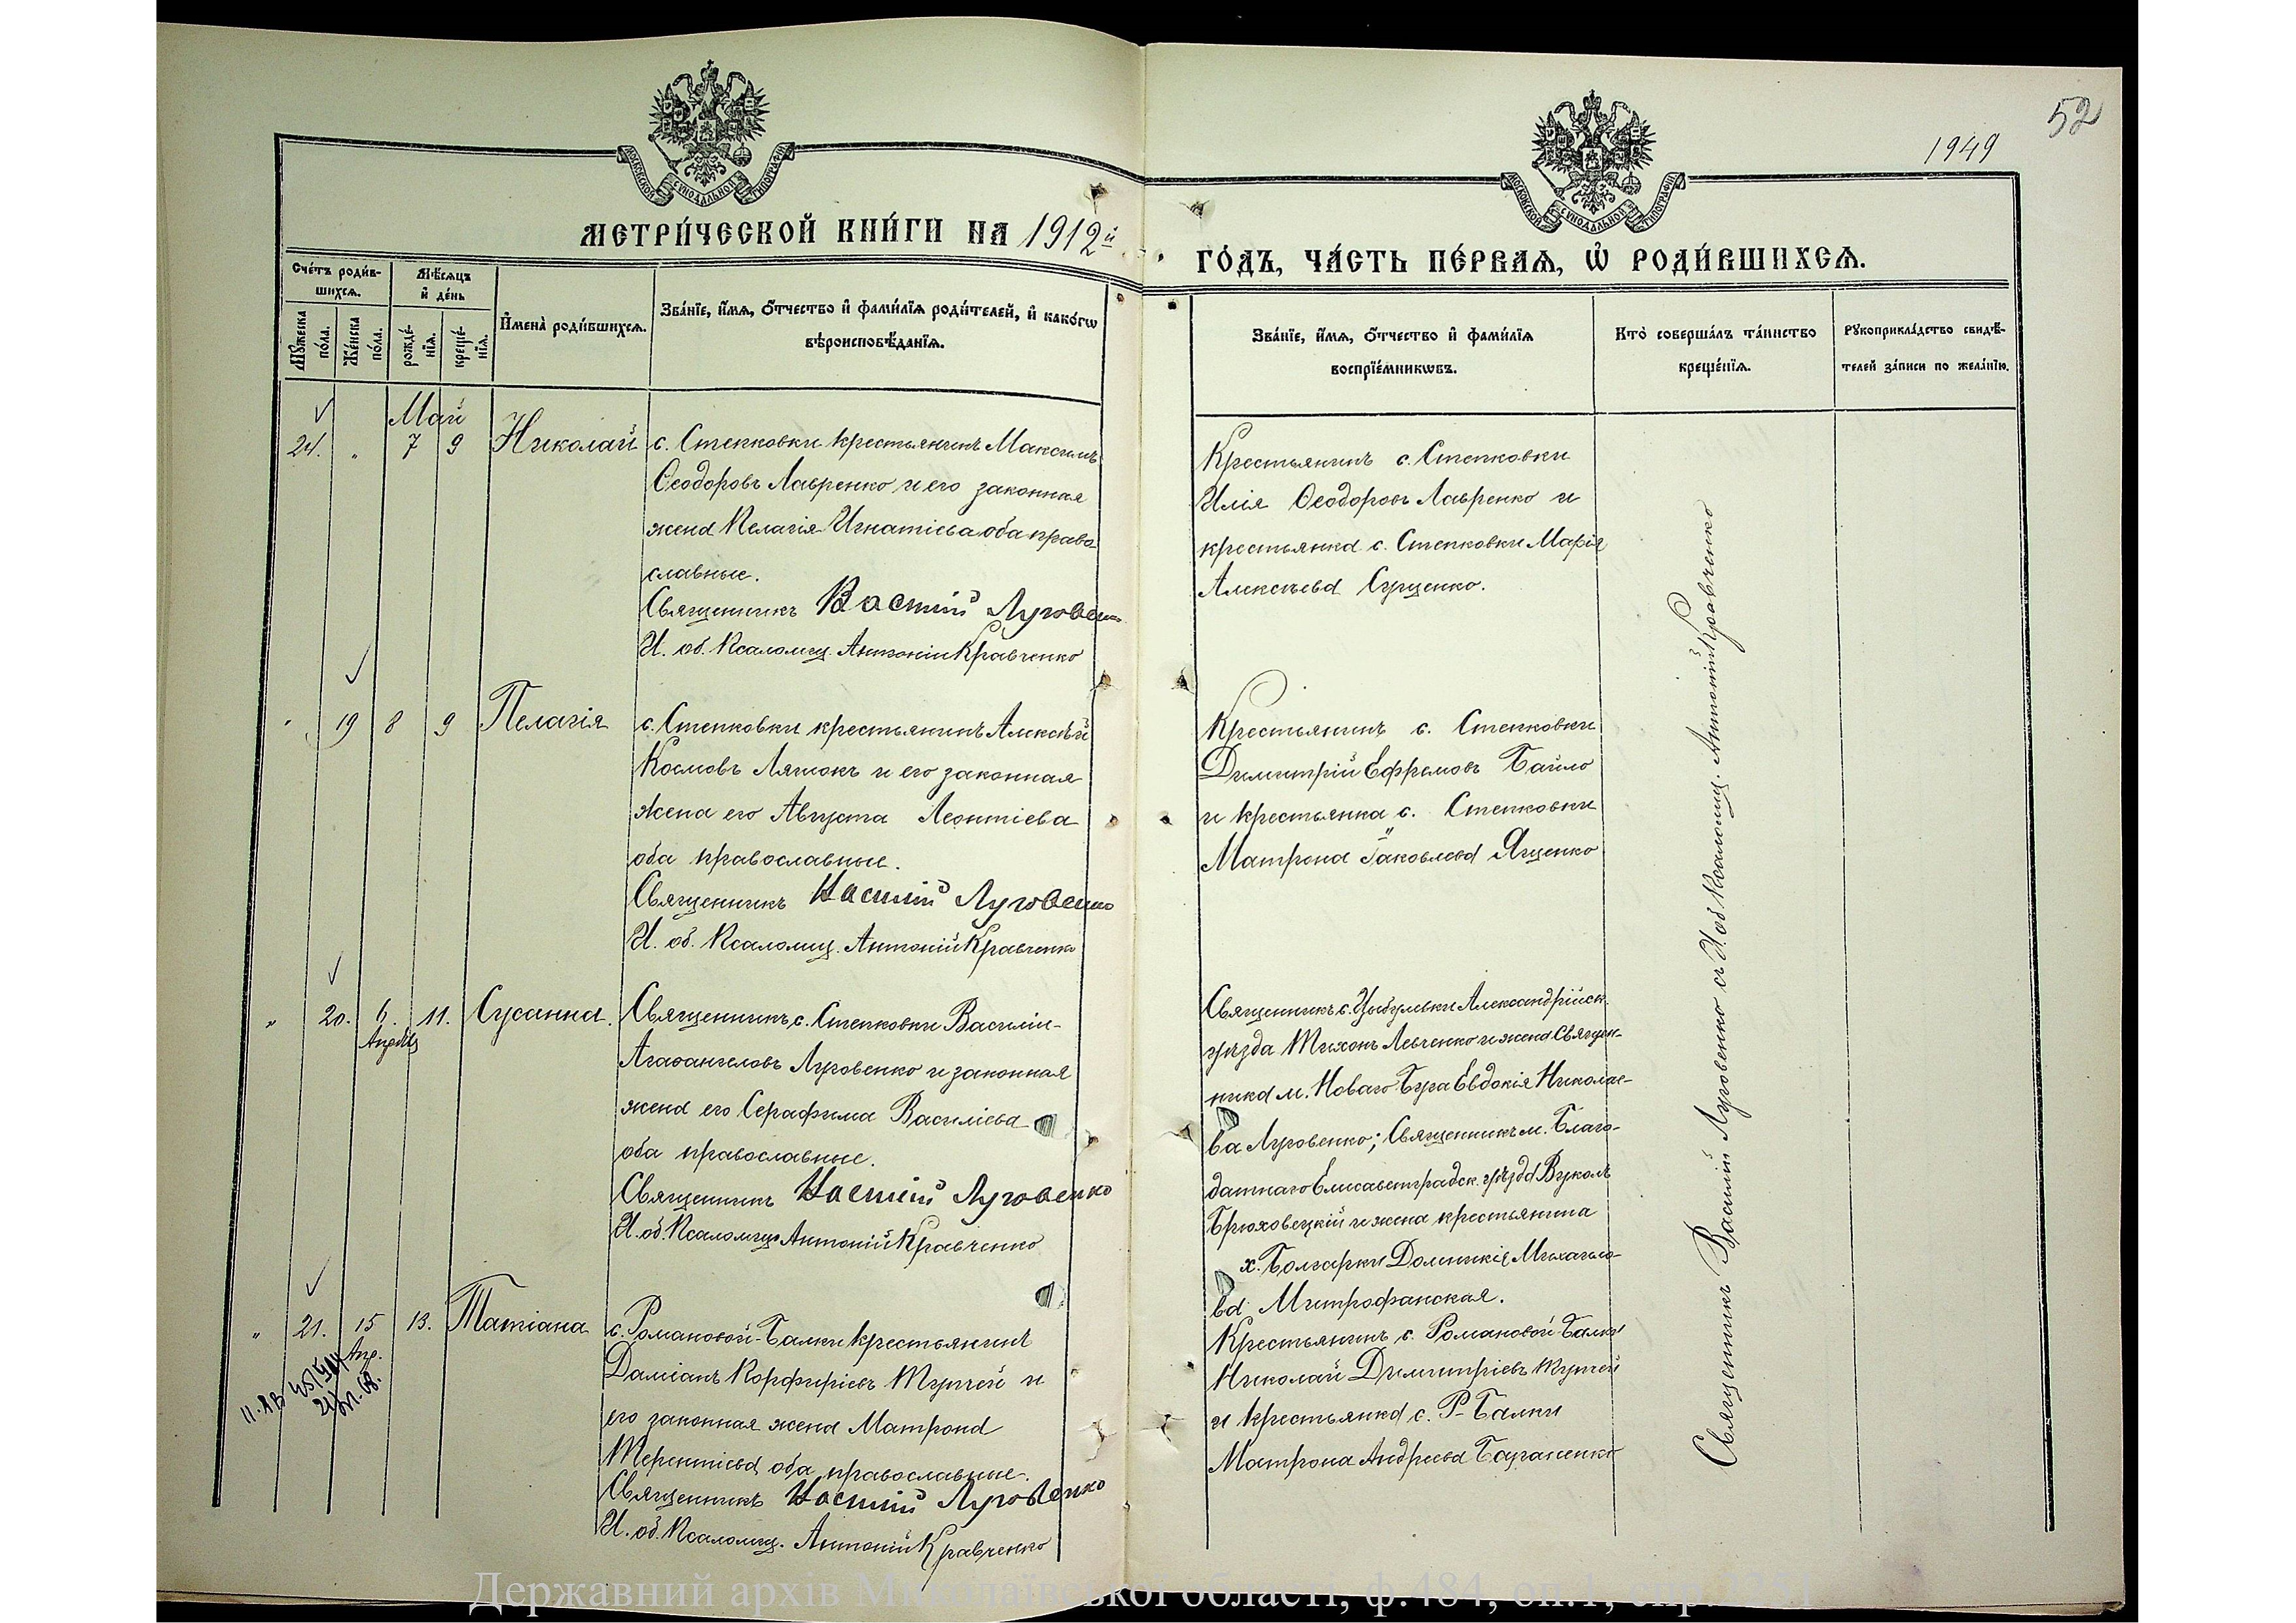 52
1949
МОСКОВСКОЙ СѴНОДАЛЬНОЙ ТИПОГРАФІИ
МОСКОВСКОЙ СѴНОДАЛЬНОЙ ТИПОГРАФІИ
МЕТРИ́ЧЕСКОЙ КНИ́ГИ НА 1912й
ГО́ДЪ, ЧА́СТЬ ПЕ́РВАѦ, Ѡ҆ РОДИ́ВШИХСѦ.
Сче́тъ роди́в-
шихсѧ.
Мꙋ́жеска
по́ла.
Же́нска
по́ла.
Мѣ́сѧцъ
и҆ де́нь
рожде́-
нїѧ.
креще́-
нїѧ.
И҆мена̀ роди́вшихсѧ.
Зва́нїе, и҆́мѧ, ѻ҆́тчество и҆ фами́лїѧ роди́телей, и҆ како́гѡ
вѣроисповѣ́данїѧ.
Зва́нїе, и҆́мѧ, ѻ҆́тчество и҆ фами́лїѧ
воспрїе́мникѡвъ.
Кто̀ соверша́лъ та́инство
креще́нїѧ.
Рꙋкоприкла́дство свидѣ́-
телей за́писи по жела́нїю.
Май
24. " 7 9 Николай
с. Степковки крестьянинъ Максимъ
Ѳеодоровъ Лавренко и его законная
жена Пелагія Игнатіева оба право
славные.
Священникъ Василій Луговенко
И. об. Псаломщ. Антоній Кравченко
Крестьянинъ с. Степковки
Илія Ѳеодоровъ Лавренко и
крестьянка с. Степковки Марія
Алексѣева Сущенко.
" 19 8 9 Пелагія
с. Степковки крестьянинъ Алексѣй
Космовъ Ляшокъ и его законная
жена его Августа Леонтіева
оба православные.
Священникъ Василій Луговенко
И. об. Псаломщ. Антоній Кравченко
Крестьянинъ с. Степковки
Димитрій Ефремовъ Байло
и крестьянка с. Степковки
Матрона Іаковлева Ященко
" 20. 6. 11. Сусанна.
Апрѣль
Священникъ с. Степковки Василій
Агаѳангеловъ Луговенко и законная
жена его Серафима Василіева
оба православные.
Священникъ Василій Луговенко
И. об. Псаломщ. Антоній Кравченко
Священникъ с. Цыбулевки Александрійск.
уѣзда Тихонъ Левченко и жена Священ-
ника м. Новаго Буга Евдокія Николае-
ва Луговенко; Священникъ м. Благо-
датнаго Елисаветградск. уѣзда Вуколъ
Брюховецкій и жена крестьянина
х. Болгарки Домникія Михаило-
ва Митрофанская.
" 21. 15 13. Татіана
Апр.
с. Романовой-Балки крестьянинъ
Даміанъ Порфиріевъ Тупчей и
его законная жена Матрона
Терентіева оба православные.
Священникъ Василій Луговенко
И. об. Псаломщ. Антоній Кравченко
Крестьянинъ с. Романовой-Балки
Николай Димитріевъ Тупчей
и крестьянка с. Р-Балки
Матрона Андреева
Священникъ Василій Луговенко съ И. об. Псаломщ. Антоній Кравченко
Державний архів Миколаївської області, ф.484, оп.1, спр.